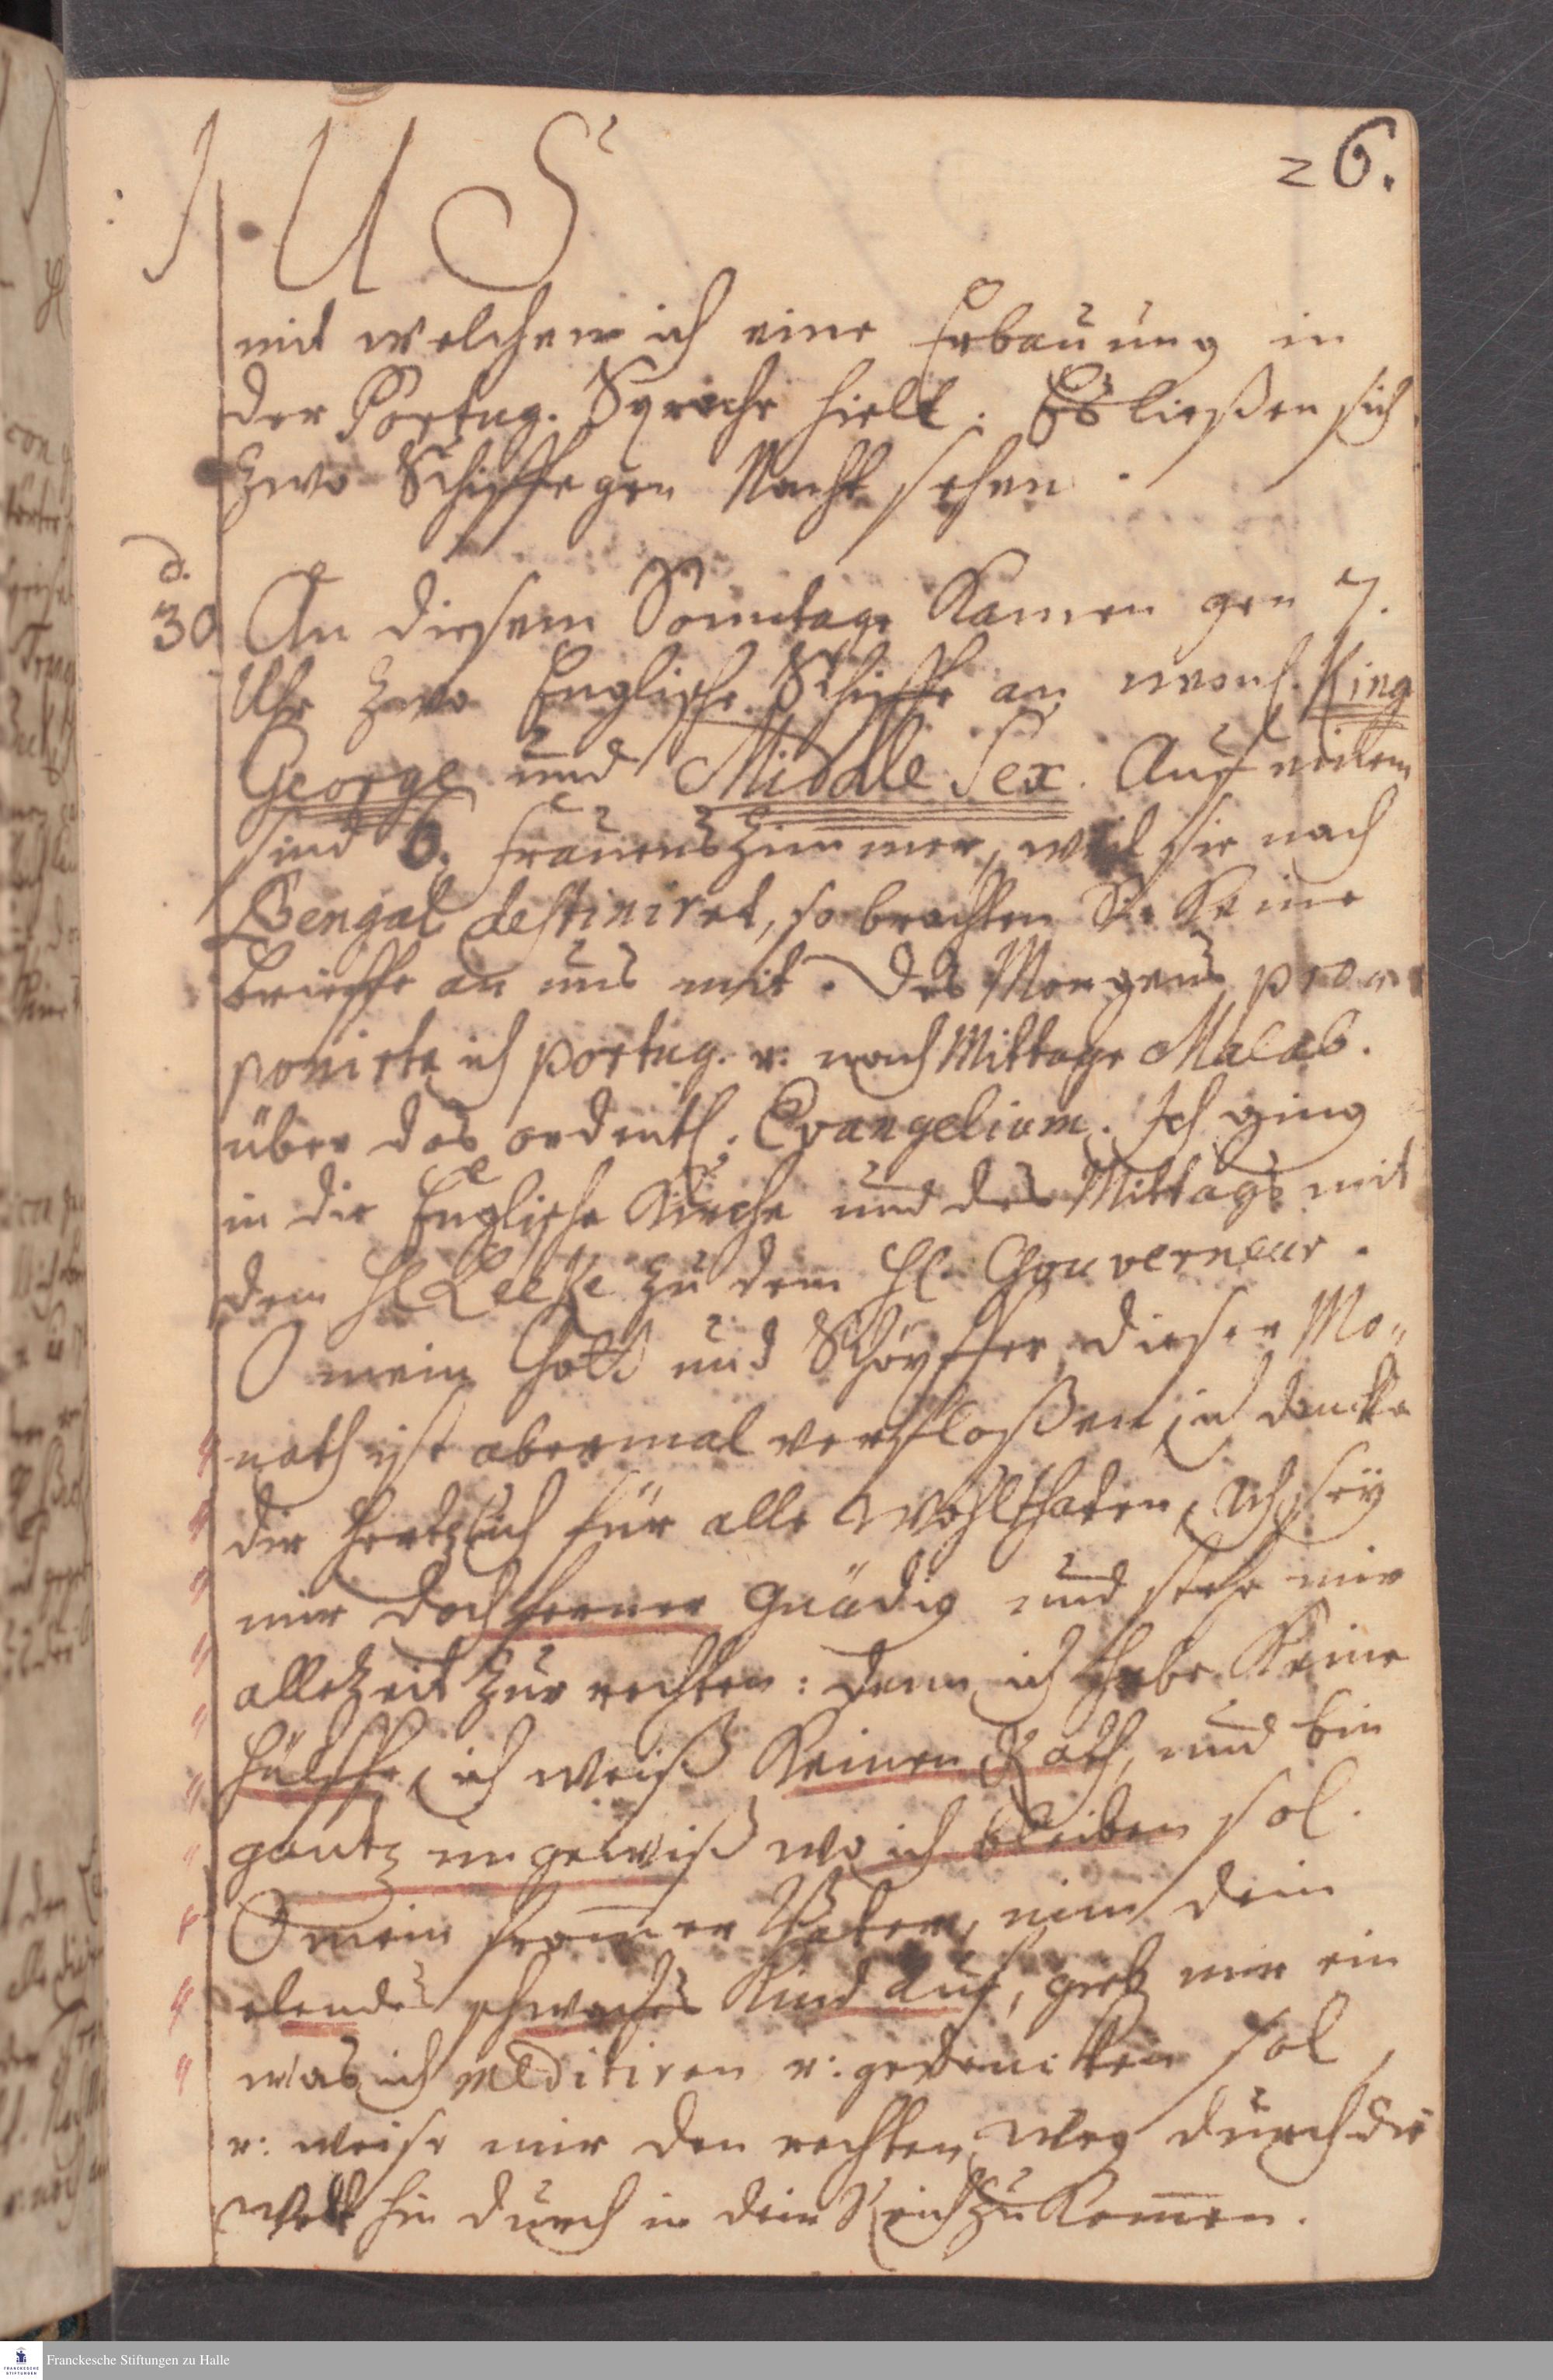 IUS
26.
mit welchen ich eine Erbauung in
der Portug. Sprache hielt. Es ließen sich
zwo Schiffe gen Nacht sehen.
d.
30
An diesem Sonntage kamen gen 7.
Uhr zwo Englische Schiffe an neml. King
George und Middle Sex. Auf einem
sind 6. Frauenszimmer, weil sie nach
Bengal destiniret, so brachten Sie keine
Brieffe an uns mit. Des Morgens pro-
ponirte ich portug. u: nach Mittage Malab.
über das ordentl. Evangelium. Ich ging
in die Englische Kirche und des Mittags mit
dem H. Leeke zu dem H. Gouverneur.
O mein Gott und Schöpffer dieser Mo-
nath ist abermal verfloßen, ich dancke
dir hertzlich für alle Wohlthaten, Ach, sey
mir doch ferner gnädig und stehe mir
allezeit zur rechten: denn ich habe keine
Hülffe, ich weiß keinen Rath, und bin
gantz ungewiß wo ich bleiben sol.
O mein from̄er Vater, nim dein
elendes schwaches Kind auf, gieb mir ein
was ich meditiren u: gedencken sol,
u: weise mir den rechten Weg durch die
Welt hin durch in dein Reich zu kom̄en.
Franckesche Stiftungen zu Halle